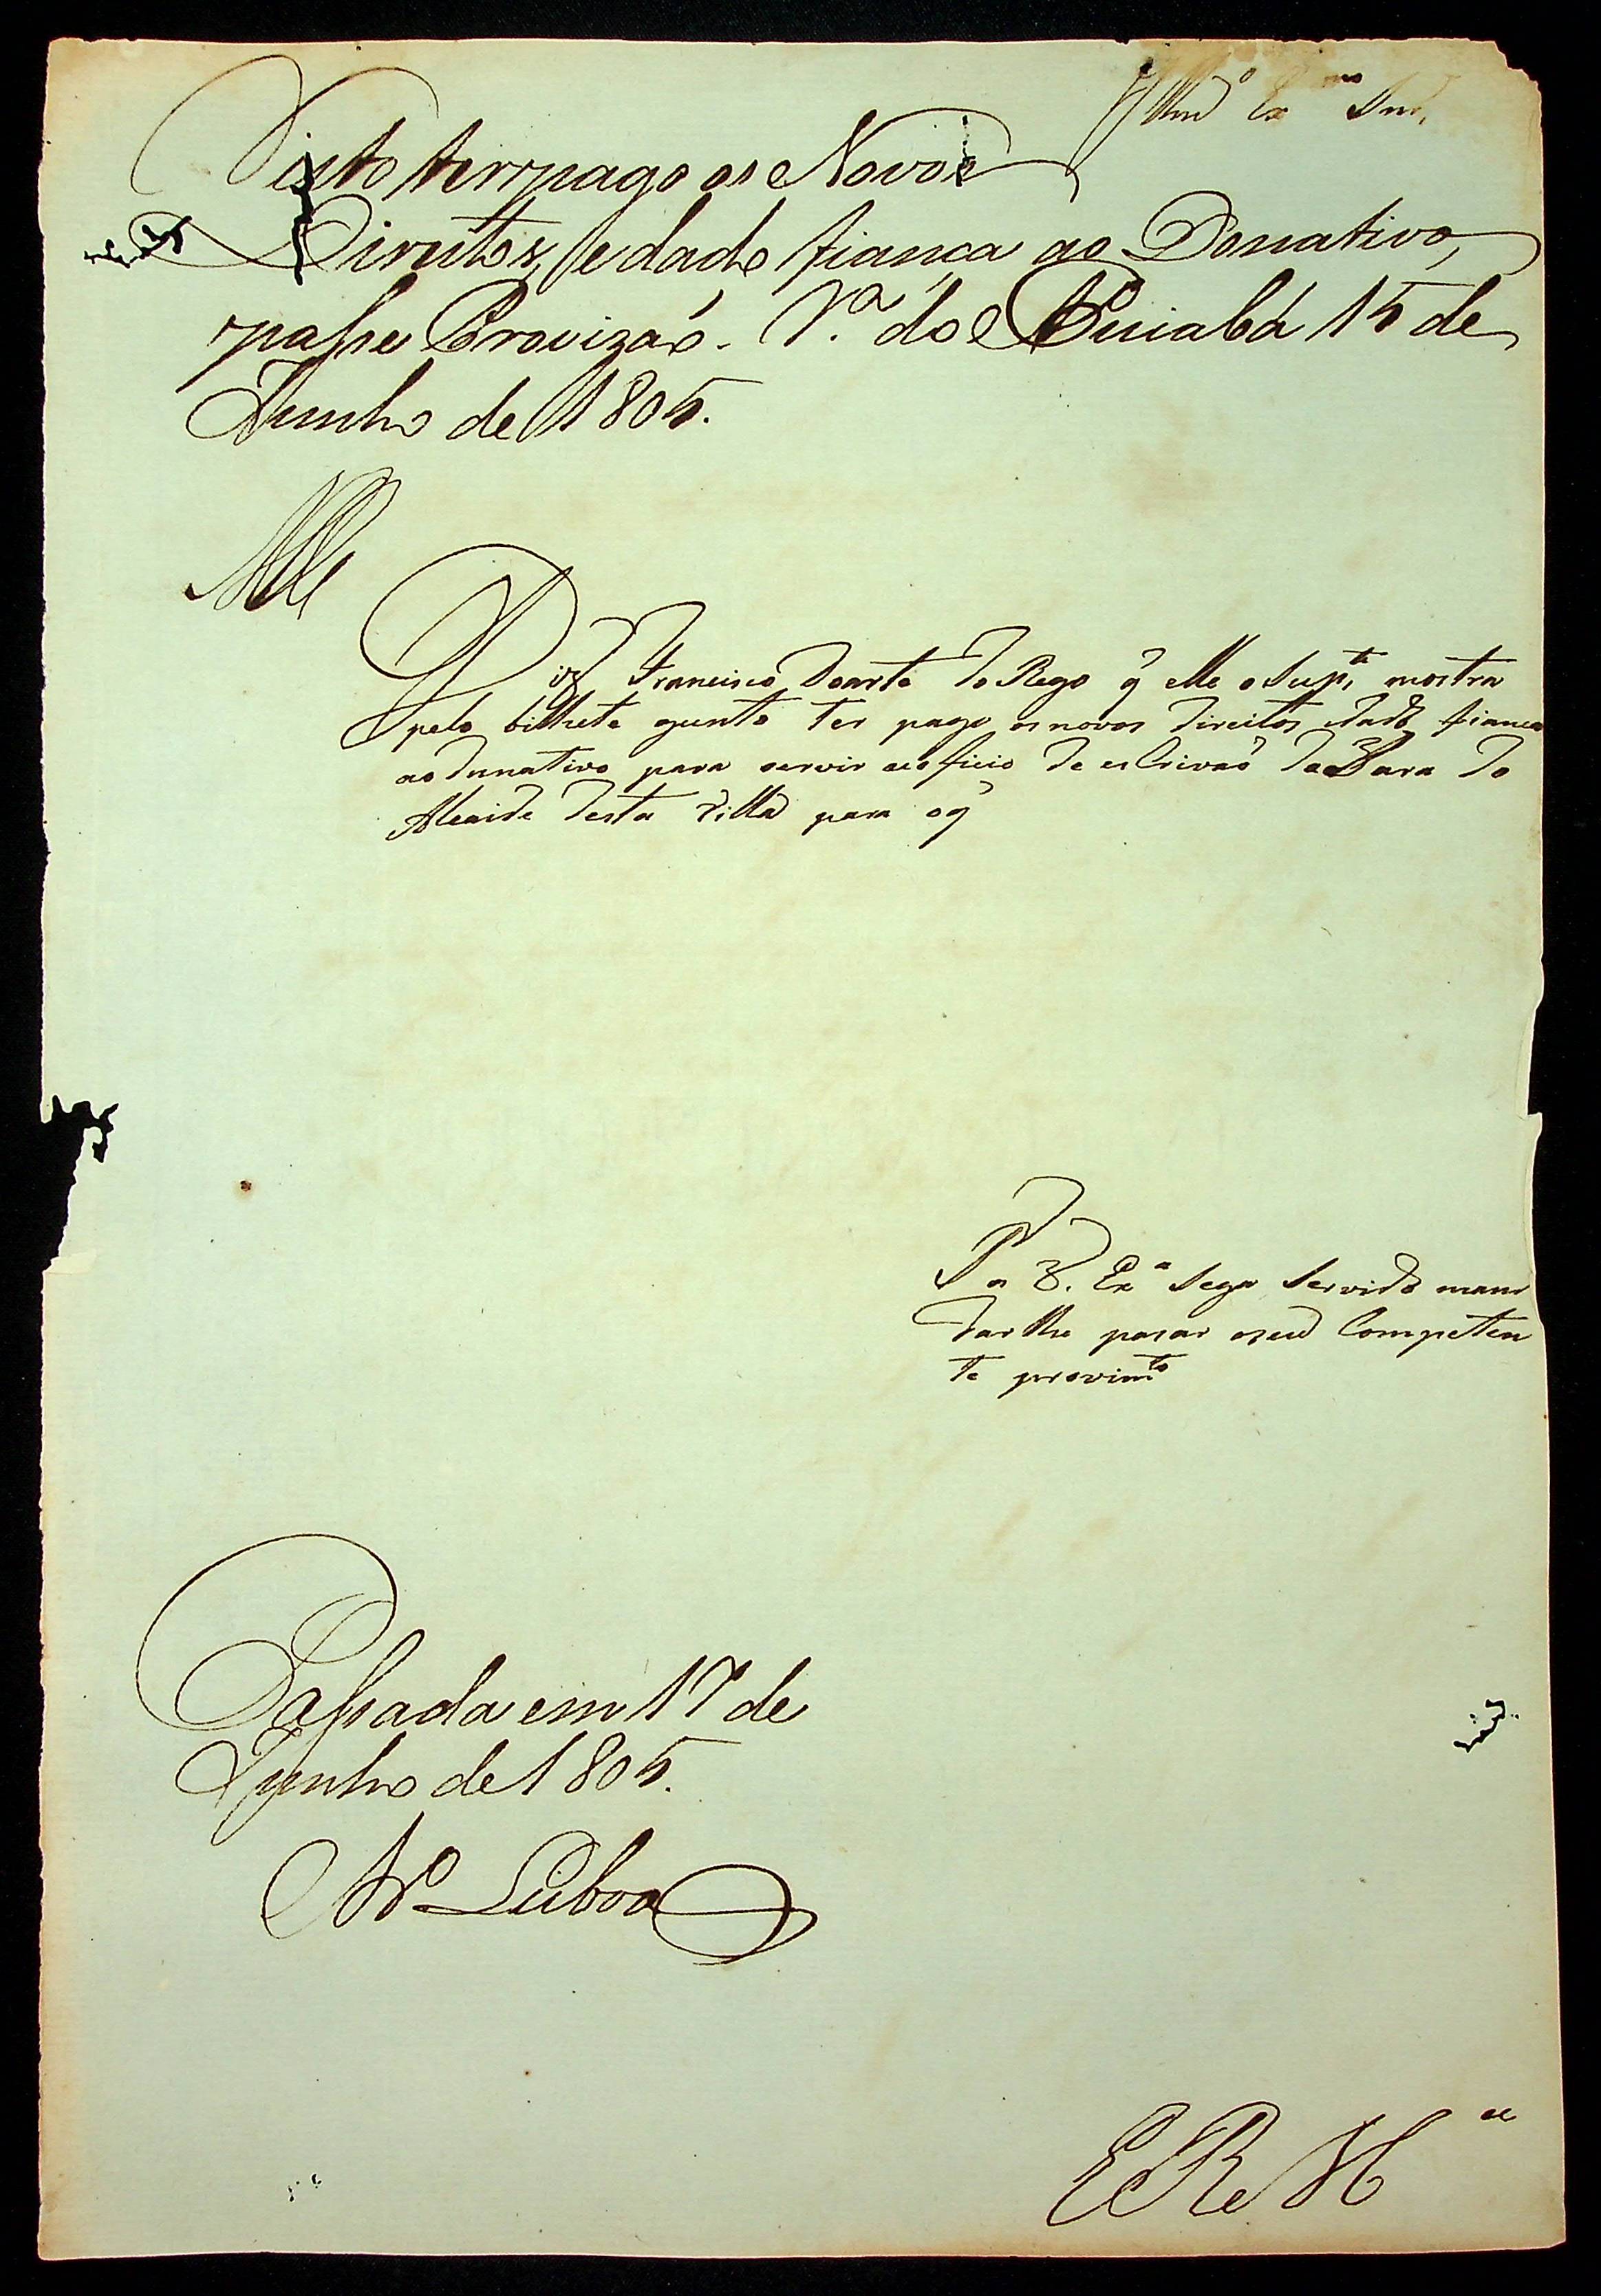 Illmo Exmo Snr.
Visto ter pago os Novos
Direitos, e dado fiança ao Donativo,
passe Provizaõ. V.ª do Cuiabá 15 de
Junho de 1805.
Diz Francisco Doarte do Rego q̃ elle o Sup.te mostra
pelo bilhete gunto ter pago os novos direitos e dado fianca
ao dunativo para servir ao oficio de escrivaõ da Vara do
Alcaide desta Villa para o q̃
P. a V. Exª Seja Servido man
dar lhe pasar o seu Competen
te provimto
Passada em 17 de
Junho de 1805.
Lisboa
E R M.ce